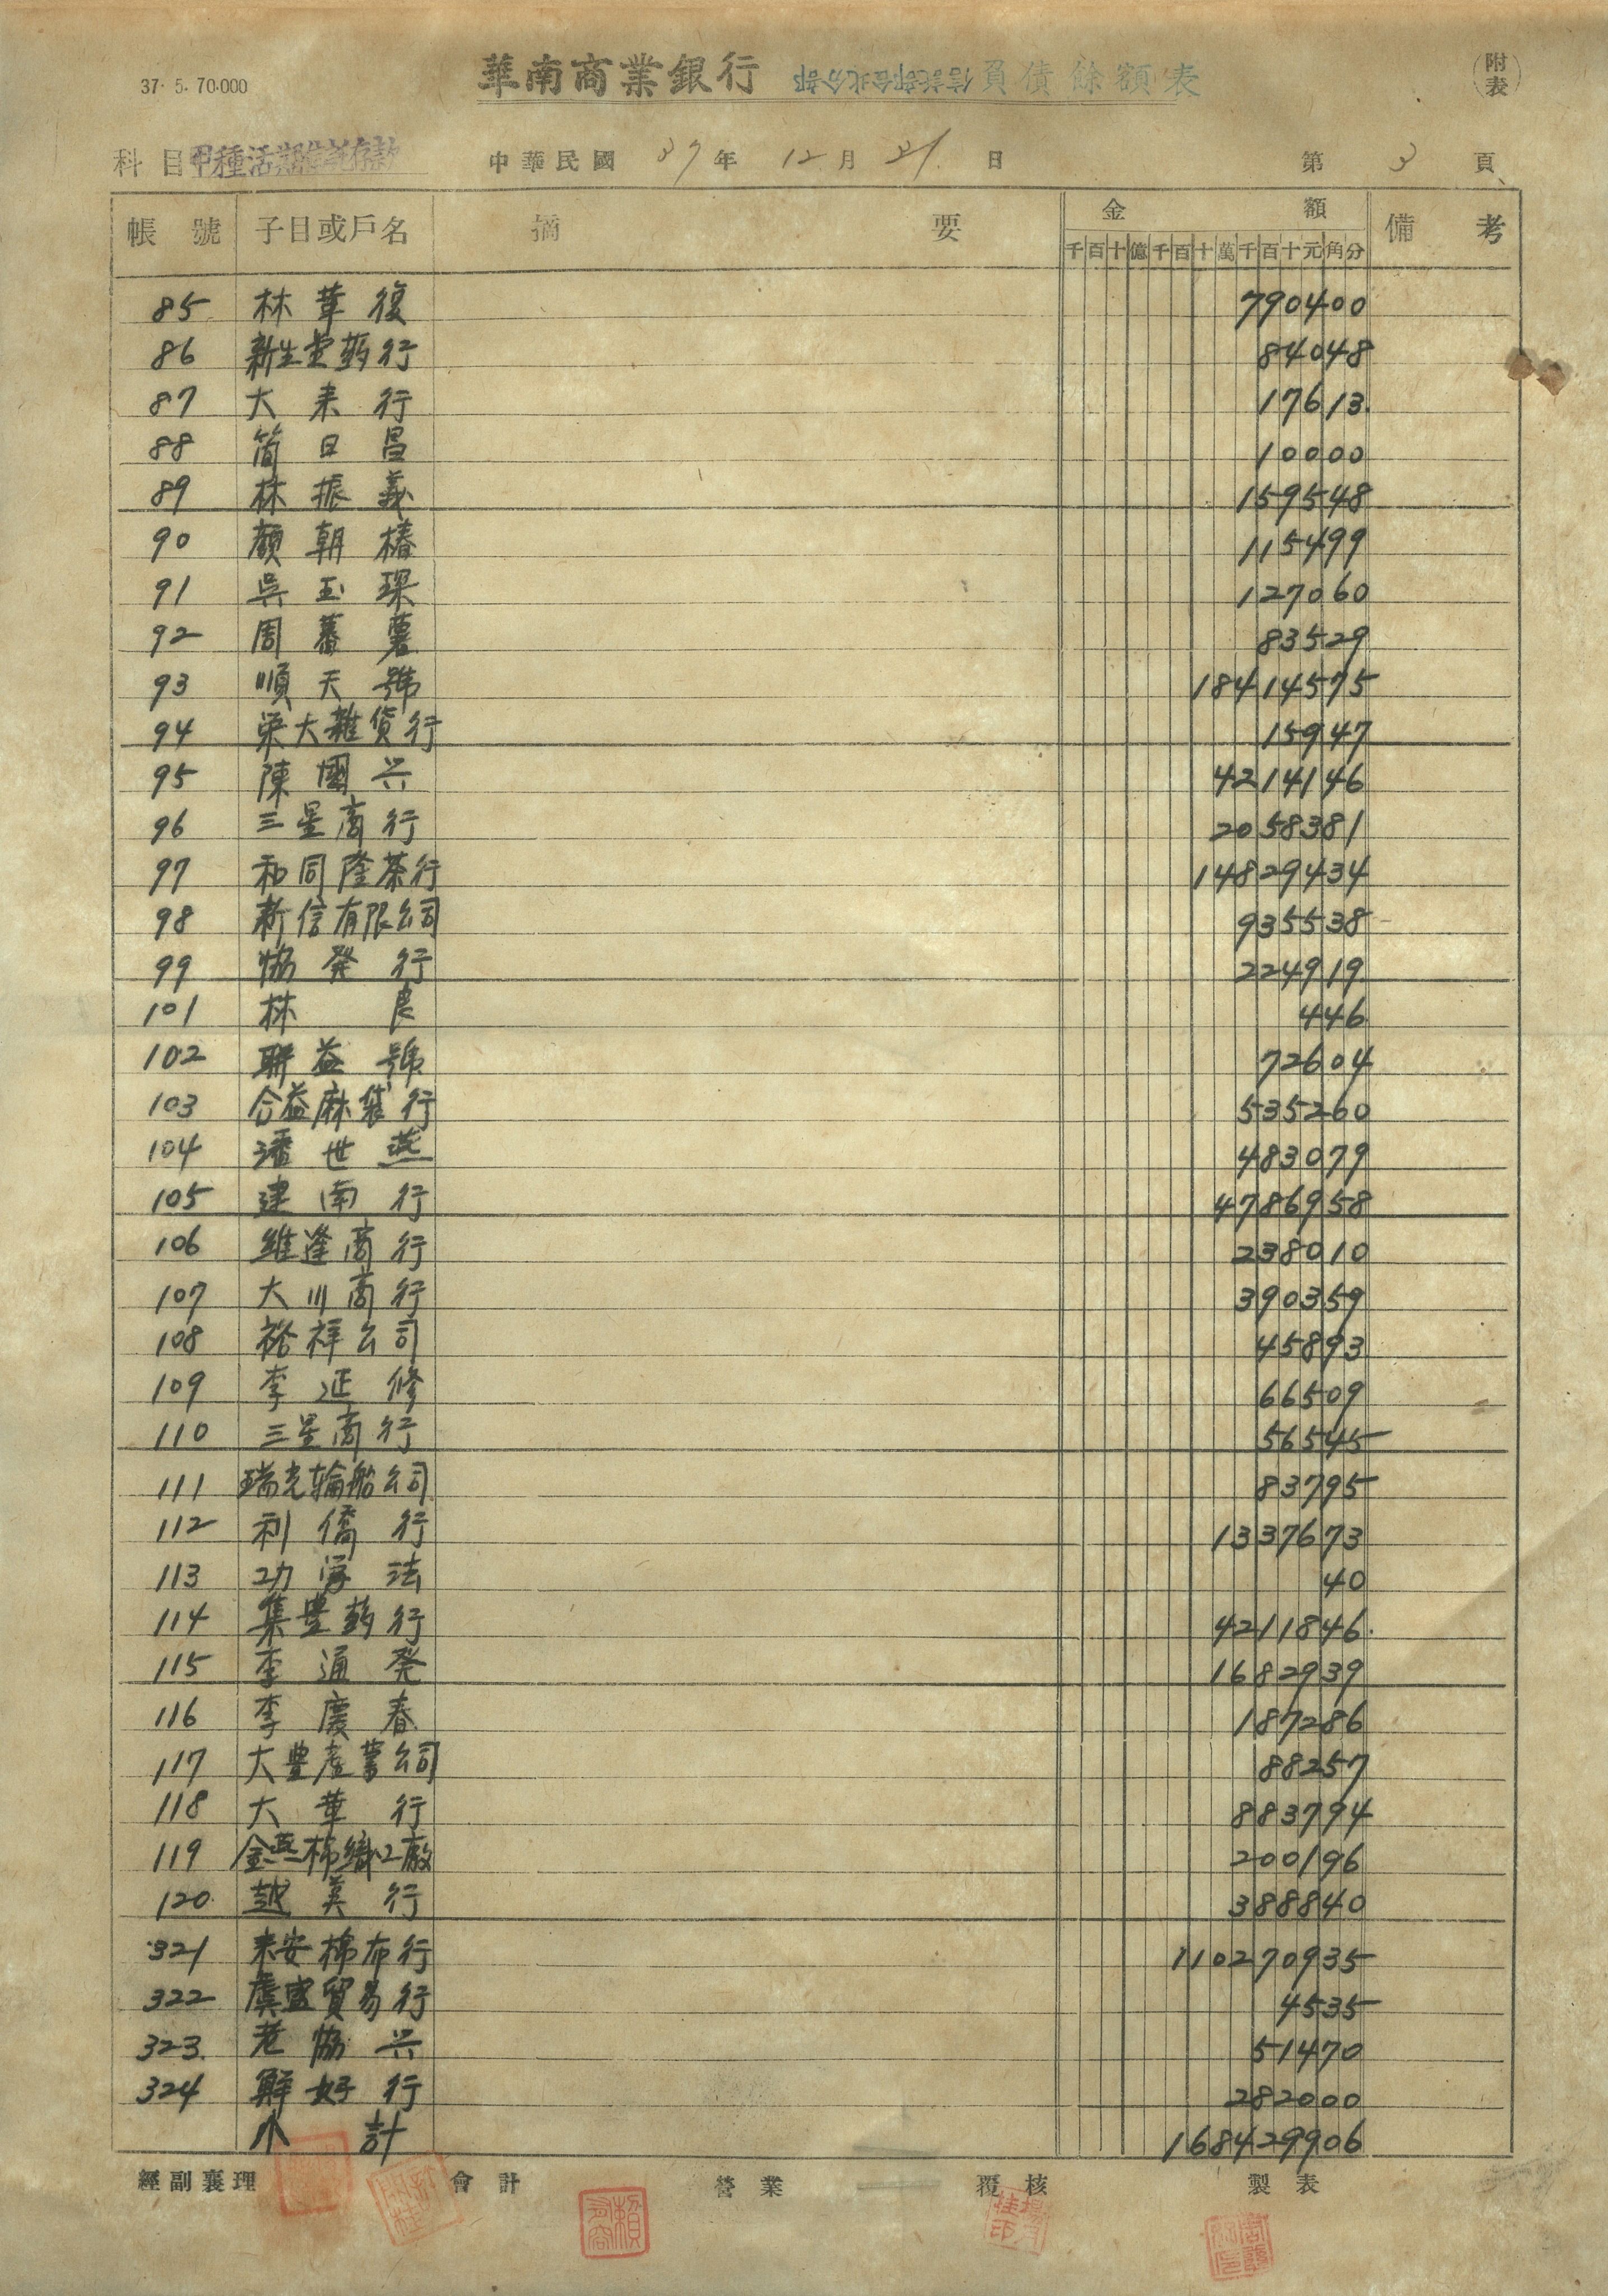 37. 5. 70.000
華南商業銀行 信託部台北分部 負債餘額表
附表
科目 甲種活期信託存款 中華民國 37年 12月 31日 第 3 頁
帳號 子目或戶名 摘要 金額 備考
千百十億千百十萬千百十元角分
85 林華復 790400
86 新生堂葯行 84048
87 大来行 17613
88 簡日昌 10000
89 林振義 159548
90 顏朝椿 115499
91 吳玉琛 127060
92 周蕃薯 83529
93 順天號 18414575
94 栄大雜貨行 15947
95 陳國兴 4214146
96 三星商行 2058381
97 和同隆茶行 14829434
98 新信有限公司 935538
99 協発行 224919
101 林良 446
102 聯益號 72604
103 合益麻袋行 535260
104 潘世燕 483079
105 建南行 4786958
106 維逢商行 238010
107 大川商行 390359
108 裕祥公司 45893
109 李延修 66509
110 三星商行 56545
111 瑞光輪船公司 83795
112 利僑行 1337673
113 功学法 40
114 集豊葯行 4211846
115 李通発 1682939
116 李慶春 187286
117 大豊産業公司 88257
118 大華行 883794
119 金燕棉織工廠 200196
120 越美行 388840
321 来安棉布行 110270935
322 虞盛貿易行 4535
323 老協兴 51470
324 鮮好行 282000
小計 168429906
經副襄理 會計 營業 覆核 製表